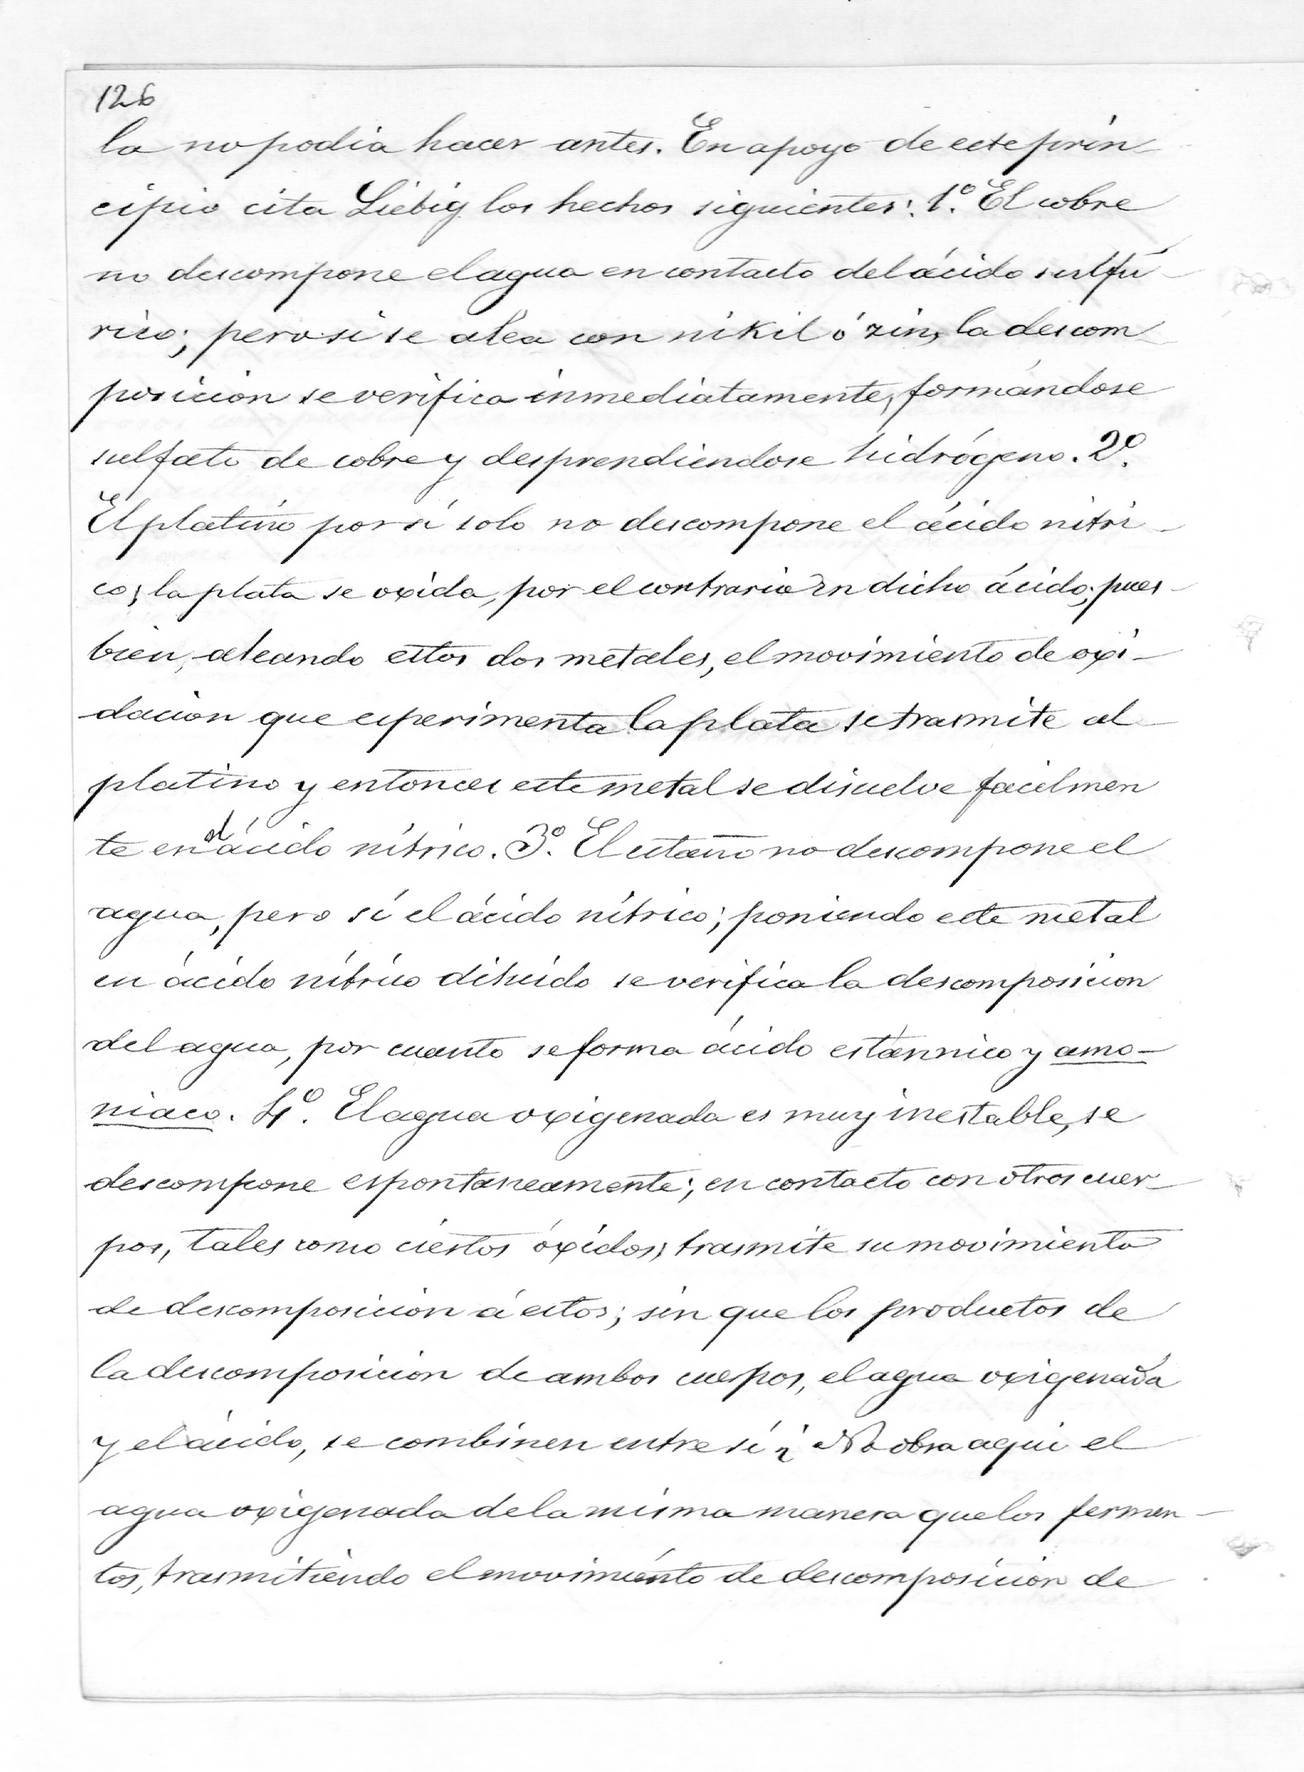 126
la no podia hacer antes. En apoyo de este prin
cipio cita Liebig los hechos siguientes: 1º. El cobre
no descompone el agua en contacto del ácido sulfú-
rico; pero si se alea con nikil ó zin, la descom
posicion se verifica inmediatamente, formándose
sulfato de cobre y desprendiendose hidrógeno. 2º.
El platino por sí solo no descompone el ácido nitri-
co; la plata se oxida, por el contrario en dicho ácido; pues-
bien, aleando estos dos metales, el movimiento de oxi-
dacion que esperimenta la plata se trasmite al
platino y entonces este metal se disuelve facilmen
te en el ácido nítrico. 3º. El estaño no descompone el
agua, pero sí el ácido nítrico; poniendo este metal
en ácido nítrico diluido se verifica la descomposicion
del agua, por cuanto se forma ácido estánnico y amo-
niaco. 4º. El agua oxigenada es muy inestable, se
descompone espontaneamente; en contacto con otros cuer-
pos, tales como ciertos óxidos, trasmite su movimiento
de descomposicion á estos; sin que los productos de
la descomposicion de ambos cuerpos, el agua oxigenada
y el ácido, se combinen entre sí ¿ No obra aqui el
agua oxigenada de la misma manera que los fermen-
tos, trasmitiendo el movimiento de descomposicion de